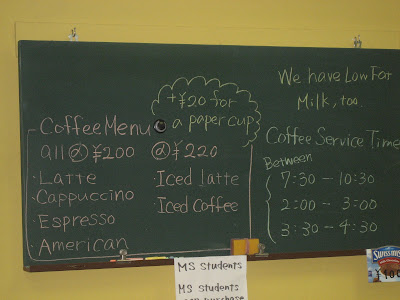 +¥20 for
a paper cup
Coffee Menu
all @ ¥200
· Latte
· Cappuccino
· Espresso
· American
@ ¥220
Iced latte
Iced Coffee
We have Low Fat
Milk, too.
Coffee Service Time
Between
7:30 - 10:30
2:00 - 3:00
3:30 - 4:30
MS Students
MS Students
purchase
¥100